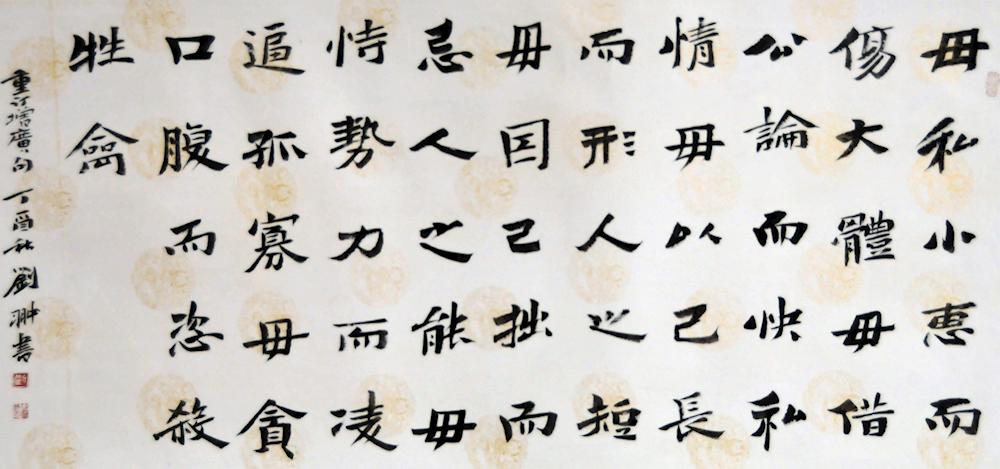 毋私小惠而
傷大體毋借
公論而快私
情毋以己長
而形人之短
毋因己拙而
忌人之能毋
恃勢力而凌
逼孤寡毋貪
口腹而恣殺
牲禽
重订增廣句丁酉秋劉翀書